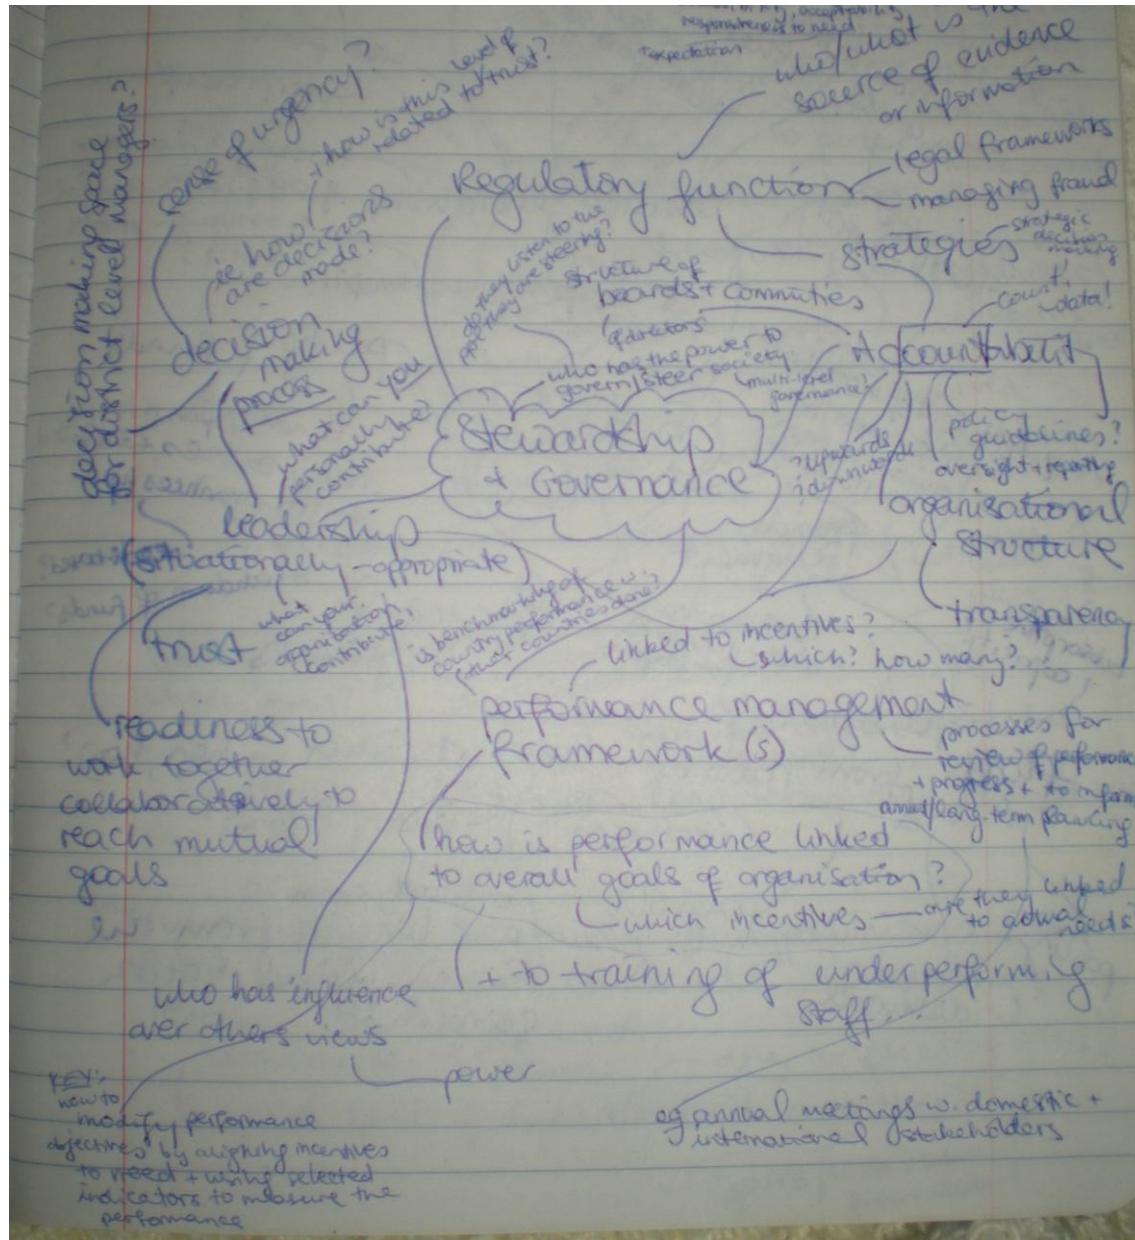 responsiveness to need
expectation
who/what is the
source of evidence
or information
sense of urgency?
+ how is this level of
related to trust?
decision making space
for district level managers?
Regulatory function
legal frameworks
managing fraud
strategies
strategic
decision
making
ie how
are decisions
made?
do they listen to the
they are steering?
structure of
boards +
count,
data!
decision
making
process
who has the power to
govern/steer society
multi-level
governance?
what can you
personally
contribute?
Stewardship
+ Governance
? upwards
? downwards
policy
guidelines?
oversight + reporting
organisational
structure
transparency
leadership
(situationally-appropriate)
trust
what
can your
organisation
contribute?
is benchmarking of
country performance w.
other countries done?
linked to incentives?
which? how many?
performance management
framework(s)
processes for
review of performance
+ progress + to inform
annual/long-term planning
readiness to
work together
collaboratively to
reach mutual
goals
how is performance linked
to overall goals of organisation?
which incentives
are they linked
to actual
needs
+ to training of underperforming
staff...
who has influence
over others views
power
KEY:
how to
modify performance
objectives by aligning incentives
to need + using selected
indicators to measure the
performance
eg annual meetings w. domestic +
international stakeholders